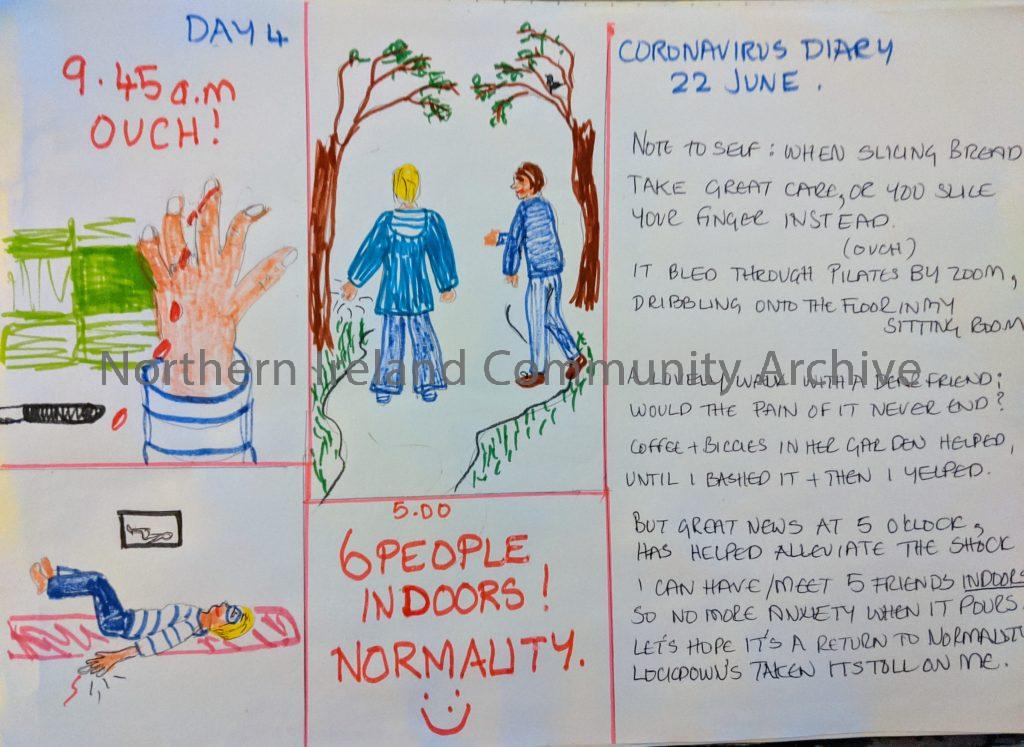 DAY 4
9.45a.m
OUCH!
5.00
6 PEOPLE
INDOORS!
NORMALITY.
CORONAVIRUS DIARY
22 JUNE.
NOTE TO SELF: WHEN SLICING BREAD
TAKE GREAT CARE, OR YOU SLICE
YOUR FINGER INSTEAD.
(OUCH)
IT BLED THROUGH PILATES BY ZOOM,
DRIBBLING ONTO THE FLOOR IN MY
SITTING ROOM
A LOVELY WALK WITH A DEAR FRIEND;
WOULD THE PAIN OF IT NEVER END?
COFFEE + BICCIES IN HER GARDEN HELPED,
UNTIL I BASHED IT + THEN I YELPED.
BUT GREAT NEWS AT 5 O'KLOCK,
HAS HELPED ALLEVIATE THE SHOCK
I CAN HAVE/MEET 5 FRIENDS INDOORS
SO NO MORE ANXIETY WHEN IT POURS.
LET'S HOPE IT'S A RETURN TO NORMALITY
LOCKDOWN'S TAKEN ITS TOLL ON ME.
Northern Ireland Community Archive